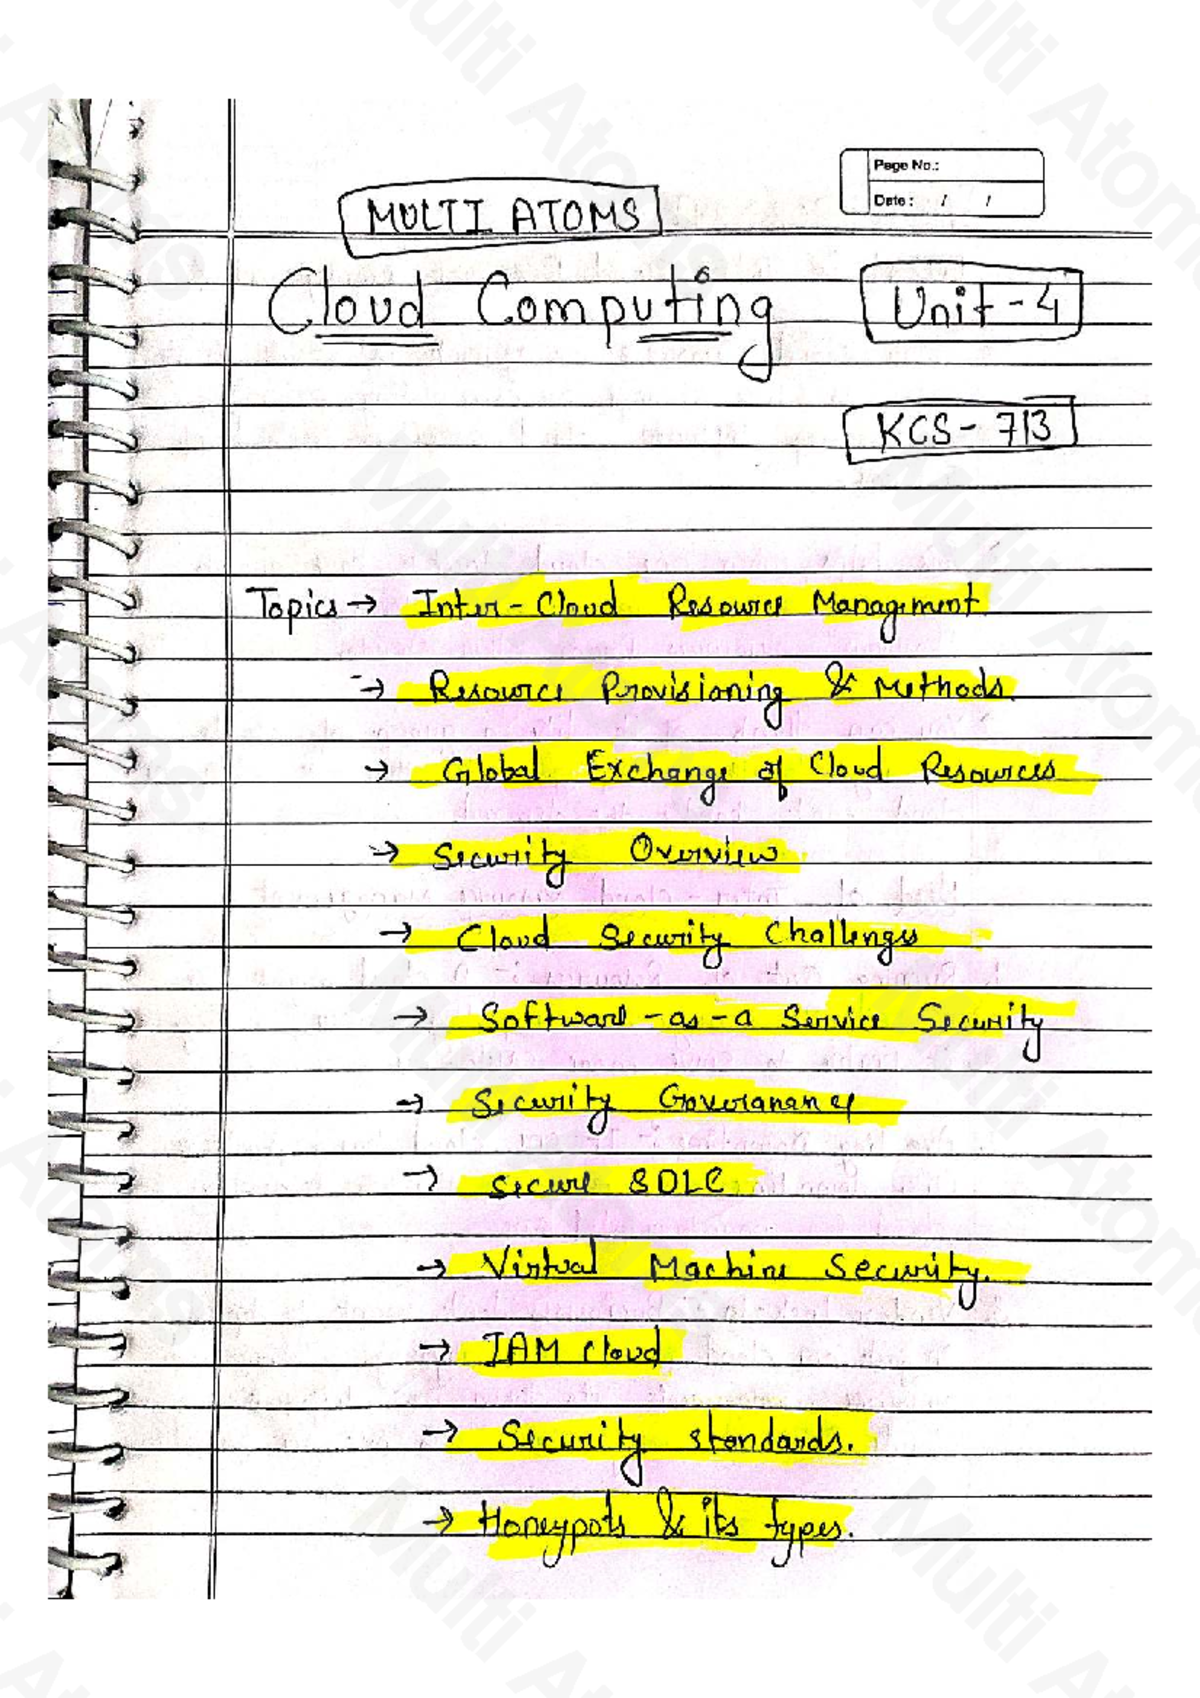 Page No.:
Date: / /
MULTI ATOMS
Cloud Computing
Unit-4
KCS-713
Topics → Inter-Cloud Resource Management
→ Resource Provisioning & Methods.
→ Global Exchange of Cloud Resources
→ Security Overview
→ Cloud Security Challenges
→ Software-as-a Service Security
→ Security Goveranance
→ Secure SDLC
→ Virtual Machine Security.
→ IAM Cloud
→ Security standards.
→ Honeypots & its types.
Multi Atoms